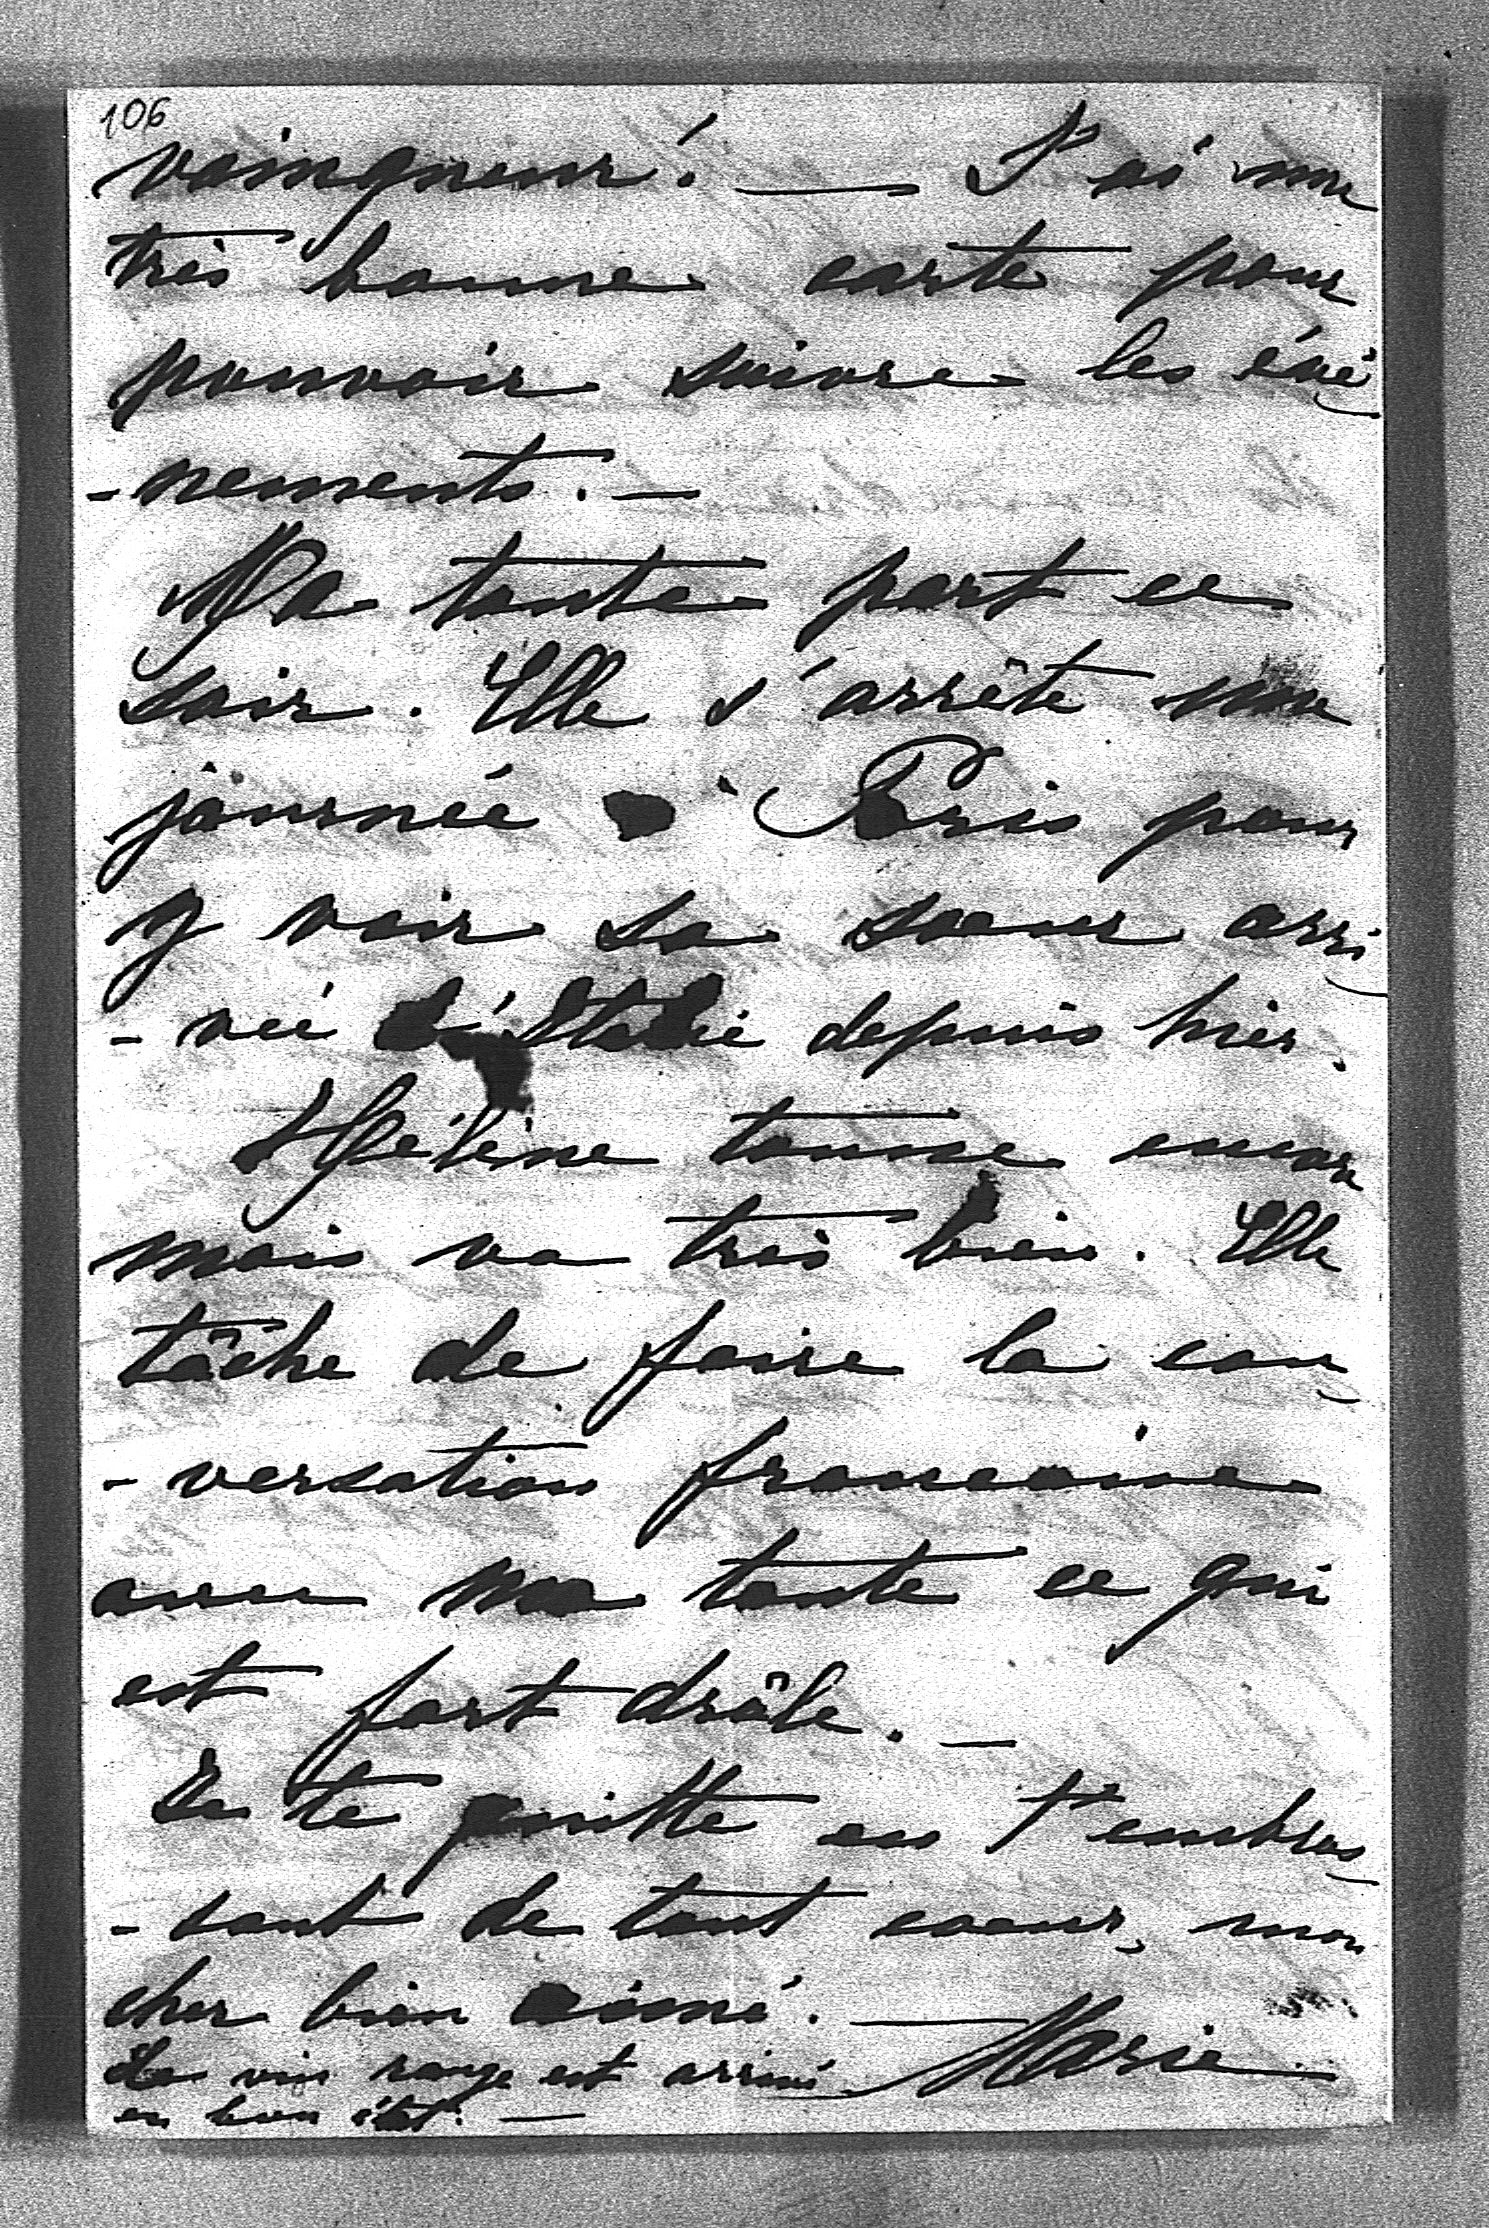 106
vainqueur! — J'ai une
très bonne carte pour
pouvoir suivre les évé
-nements. —
Ma tante part ce
soir. Elle s'arrête une
journée à Paris pour
y voir sa soeur arri
-vée d'Italie depuis hier.
Hélène tousse encore
mais va très bien. Elle
tâche de faire la con
-versation francaise
avec ma tante ce qui
est fort drôle. —
Je te quitte en t'embras
-sant de tout coeur, mon
cher bien aimé. — Marie
Le vin rouge est arrivé
en bon état. —